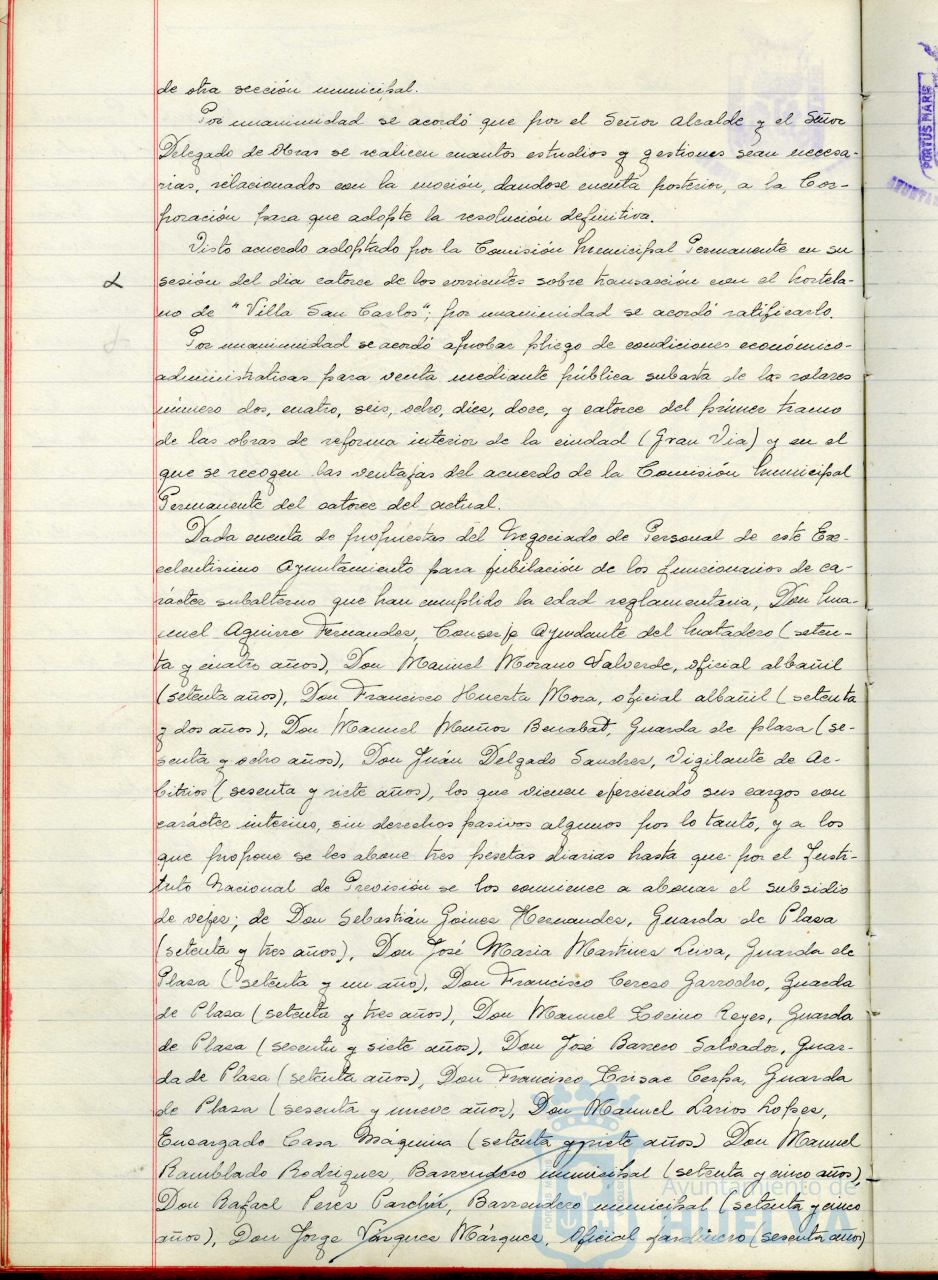 de otra sección municipal.
Por unanimidad se acordó que por el Señor Alcalde y el Señor
Delegado de Obras se realicen cuantos estudios y gestiones sean necesa-
rias, relacionados con la moción, dandose cuenta posterior, a la Cor-
poración para que adopte la resolución definitiva.
Visto acuerdo adoptado por la Comisión Municipal Permanente en su
sesión del dia catorce de los corrientes sobre transacción con el hortela-
no de "Villa San Carlos"; por unanimidad se acordó ratificarlo.
Por unanimidad se acordó aprobar pliego de condiciones económico-
administrativas para venta mediante pública subasta de los solares
número dos, cuatro, seis, ocho, diez, doce, y catorce del primer tramo
de las obras de reforma interior de la ciudad (Gran Via) y en el
que se recogen las ventajas del acuerdo de la Comisión Municipal
Permanente del catorce del actual.
Dada cuenta de propuestas del Negociado de Personal de este Ex-
celentisimo Ayuntamiento para jubilación de los funcionarios de ca-
rácter subalterno que han cumplido la edad reglamentaria, Don Ma-
nuel Aguirre Fernandez, Conserje Ayudante del Matadero (seten-
ta y cuatro años), Don Manuel Morano Valverde, oficial albañil
(setenta años), Don Francisco Huerta Mora, oficial albañil (setenta
y dos años), Don Manuel Muños Benabat, Guarda de plaza (se-
senta y ocho años), Don Juán Delgado Sanchez, Vigilante de Ar-
bitrios (sesenta y siete años), los que vienen ejerciendo sus cargos con
carácter interino, sin derechos pasivos algunos por lo tanto, y a los
que propone se les abone tres pesetas diarias hasta que por el Insti-
tuto Nacional de Previsión se los comience a abonar el subsidio
de vejez; de Don Sebastián Gomez Hernandez, Guarda de Plaza
(setenta y tres años), Don José Maria Martinez Leiva, Guarda de
Plaza (setenta y un año), Don Francisco Cerezo Garrocho, Guarda
de Plaza (setenta y tres años), Don Manuel Tocino Reyes, Guarda
de Plaza (sesenta y siete años), Don José Barrero Salvador, Guar-
da de Plaza (setenta años), Don Francisco Trisac Cerpa, Guarda
de Plaza (sesenta y nueve años), Don Manuel Larios Lopez,
Encargado Casa Máquina (setenta y siete años) Don Manuel
Ramblado Rodriguez, Barrendero municipal (setenta y cinco años),
Don Rafael Perez Parchú, Barrendero municipal (setenta y cinco
años), Don Jorge Vázquez Márquez, Oficial jardinero (sesenta años)
PORTUS MARIS
Ayuntamiento de
HUELVA